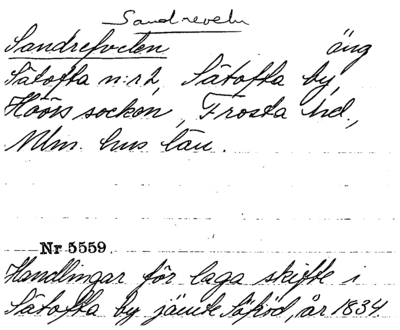 Sandreveln
Sandrefvelen äng
Sätofta n:r 2, Sätofta by,
Höörs socken, Frosta hd.,
Mlm. hus län.
Nr 5559.
Handlingar för laga skifte i
Sätofta by jämte Säfröd, år 1834